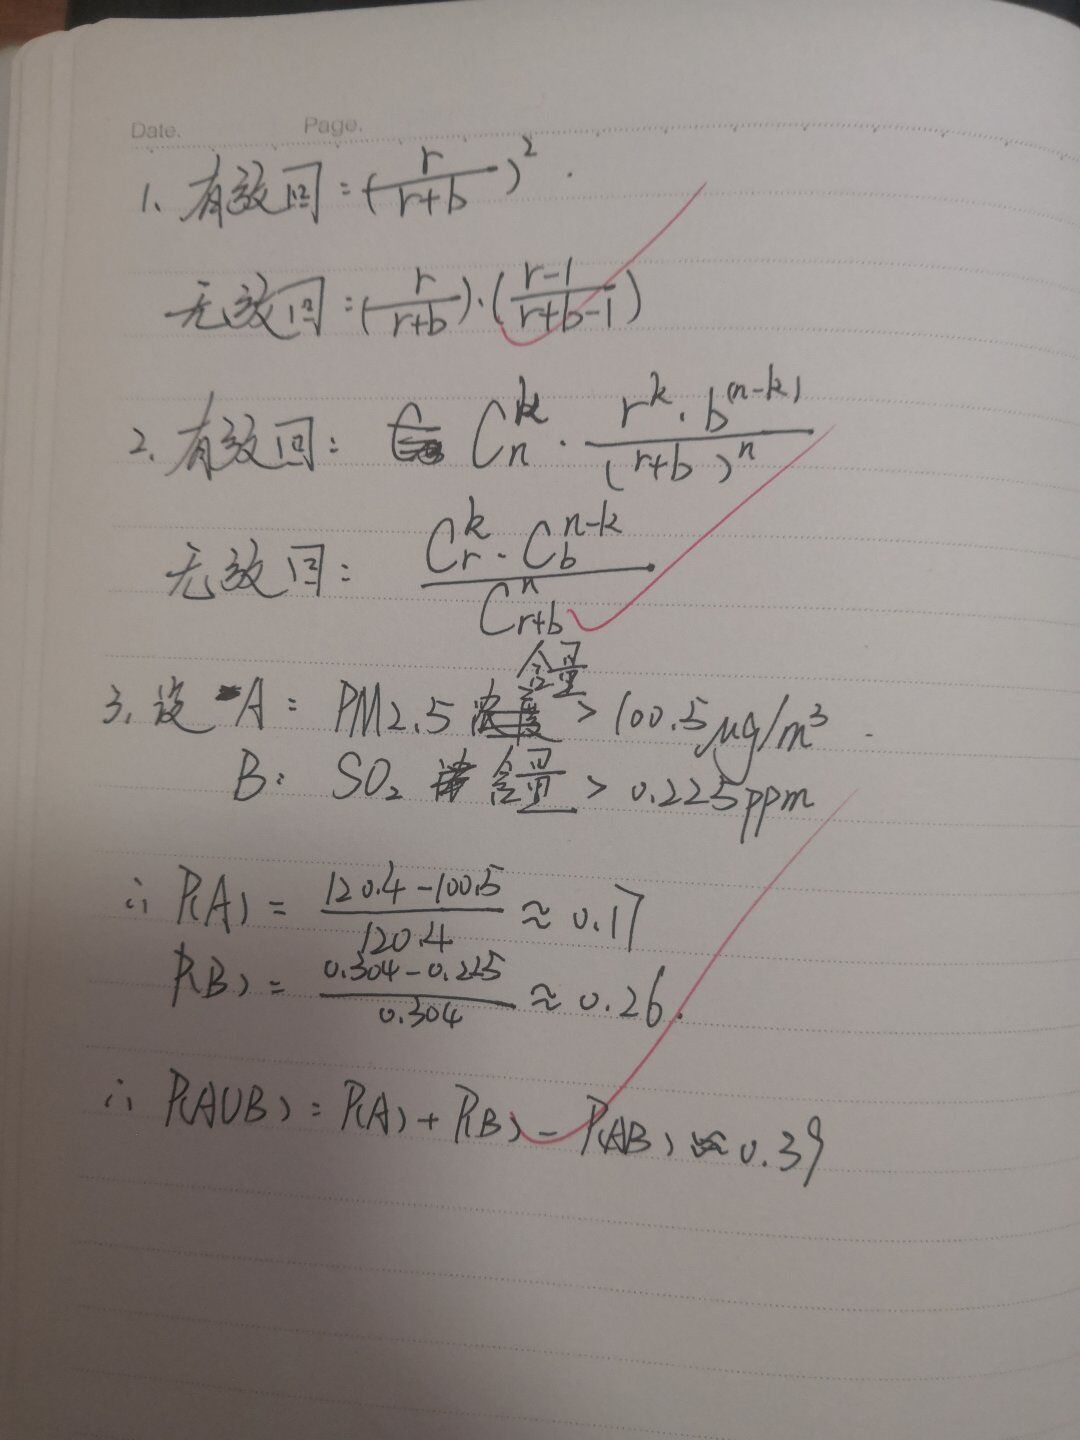 Date. Page.
1. 有放回 = (r/(r+b))².
无放回 = (r/(r+b))·((r-1)/(r+b-1))
2. 有放回: C_n^k · (r^k · b^(n-k))/(r+b)^n
无放回: (C_r^k · C_b^(n-k))/C_(r+b)^n
含量
3. 设 A: PM2.5 > 100.5μg/m³.
B: SO₂ 含量 > 0.225ppm
∴ P(A) = (120.4-100.5)/120.4 ≈ 0.17
P(B) = (0.304-0.225)/0.304 ≈ 0.26.
∴ P(A∪B) = P(A) + P(B) - P(AB) ≈ 0.39